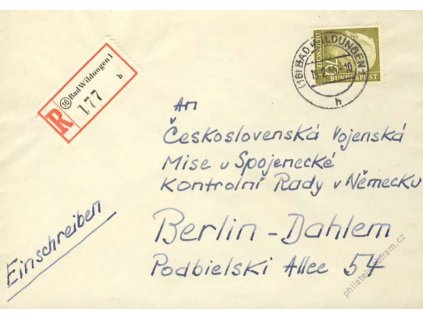 R
(16) Bad Wildungen 1
b
177
(16) BAD WILDUNGEN 1
h
BUNDESPOST
An
Československá Vojenská
Mise u Spojenecké
Kontrolní Rady v Německu
Berlin-Dahlem
Podbielski Allee 54
Einschreiben